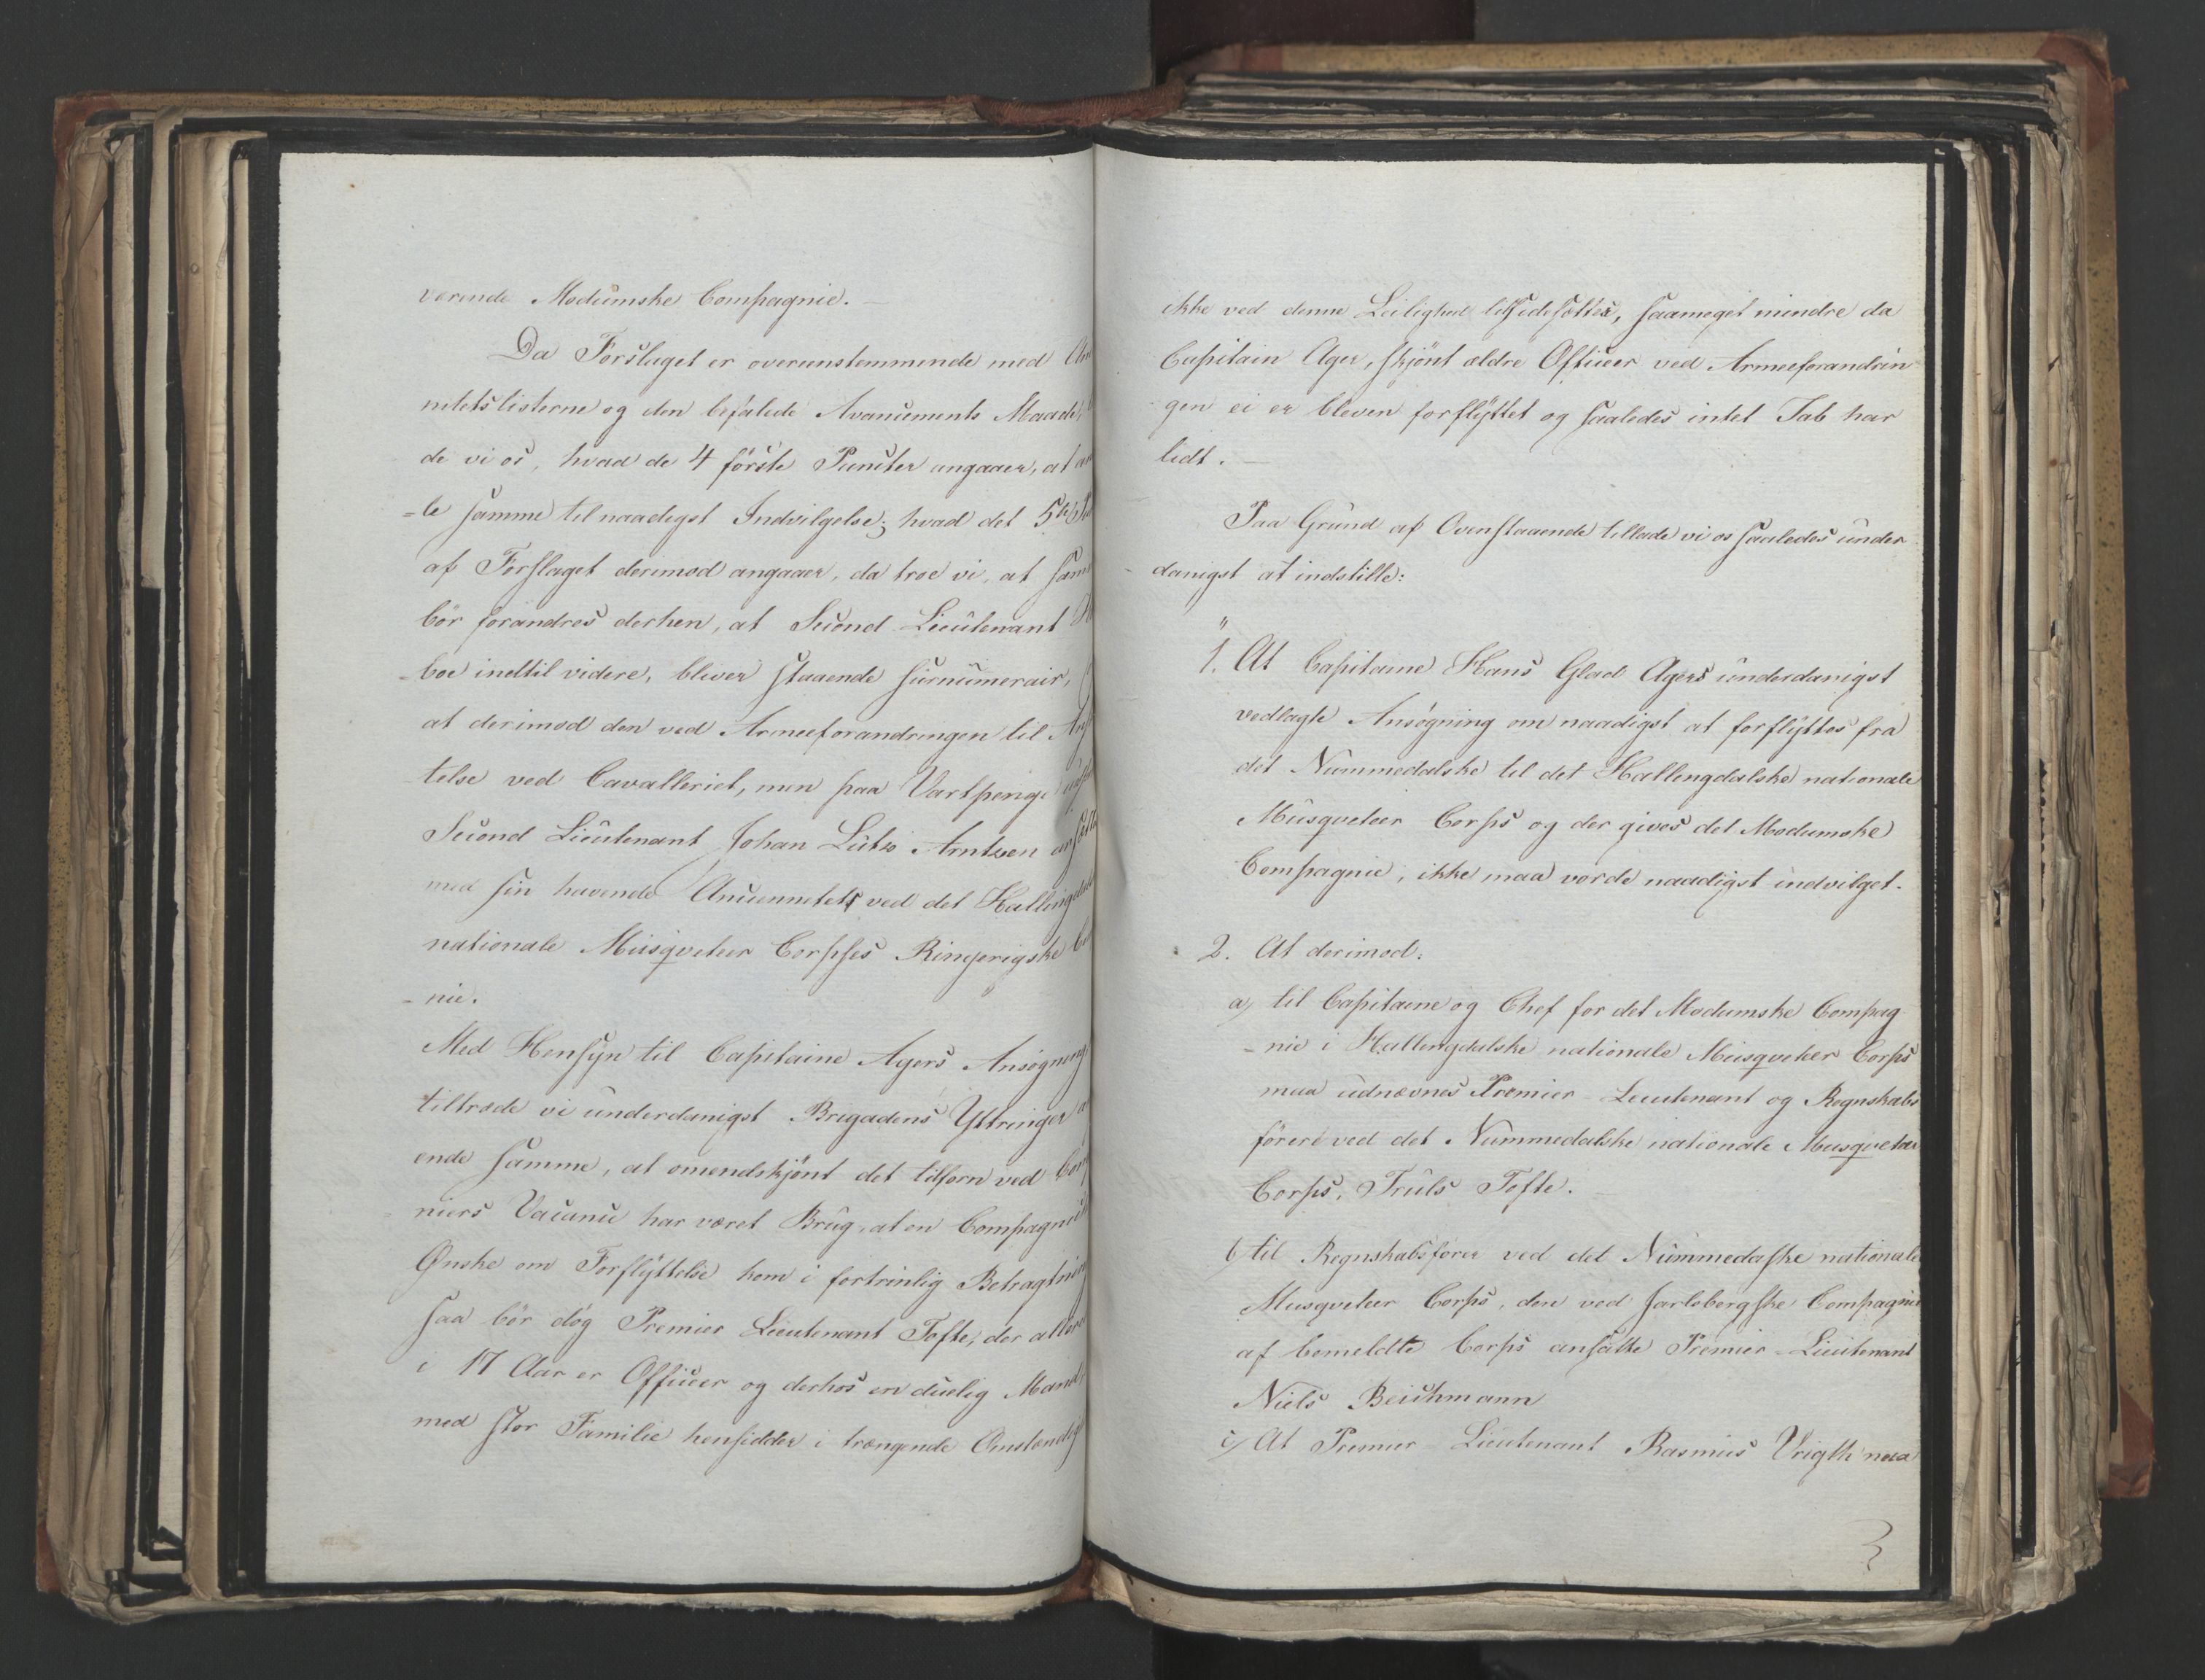 værende Modumske Compagnie. —
Da Forslaget er overeenstemmende med An
nitetslisterne og den befalede Avancements Maade,
de vi os, hvad de 4 første Puncter angaaer, at an
=le samme til naadigst Indvilgelse; hvad det 5te
af Forslaget derimod angaaer, da troe vi, at sam
bör forandres derhen, at Second-Lieutenant
-boe indtil videre, bliver staaende surnumerair,
at derimod den ved Armeeforandringen til An
telse ved Cavalleriet, men paa Vartpenge
Second Lieutenant Johan Lütso Arntzen ansætte
med sin havende Anciennitet ved det Hallingdal
nationale Musqveteer Corpses Ringerigske Co
- nie.
Med Hensyn til Capitaine Agers Ansøgning
tiltræde vi underdanigst Brigadens Yttringer
ende samme, at omendskjønt det tilforn ved Com
niers Vacance har været Brug, at en Compagnie
Ønske om Forflyttelse kom i fortrinlig Betragtning
saa bör dog Premier Lieutenant Tofte, der aller
i 17 Aar er Officeer og derhos en duelig Mand,
med stor Familie hensidder i trængende Omstændig
ikke ved denne Leilighed tilsidesættes, saameget mindre da
Capitain Ager, skjönt ældre Officeer ved Armeeforandrin
gen ei er bleven forflyttet og saaledes intet Tab har
lidt. —
Paa Grund af Ovenstaaende tillade vi os saaledes under
danigst at indstille:
"
1. At Capitaine Hans Glad Agers underdanigst
vedlagte Ansøgning om naadigst at forflyttes fra
det Nummedalske til det Hallengdalske nationale
Musqveteer Corps og der gives det Modumske
Compagnie, ikke maa vorde naadigst indvilget.
2. At derimod:
a, til Capitaine og Chef for det Modumske Compag
- nie i Hallengdalske nationale Musqveteer Corps
maa udnævnes Premier-Lieutenant og Regnskabs
förer ved det Nummedalske nationale Musqveteer
Corps, Truls Tofte. —
b, til Regnskabsförer ved det Nummedalske nationale
Musqveteer Corps, den ved Jarlsbergske Compagnie
af bemeldte Corps ansatte Premier-Lieutenant
Niels Beichmann
c, At Premier Lieutenant Rasmus Vrigth maa